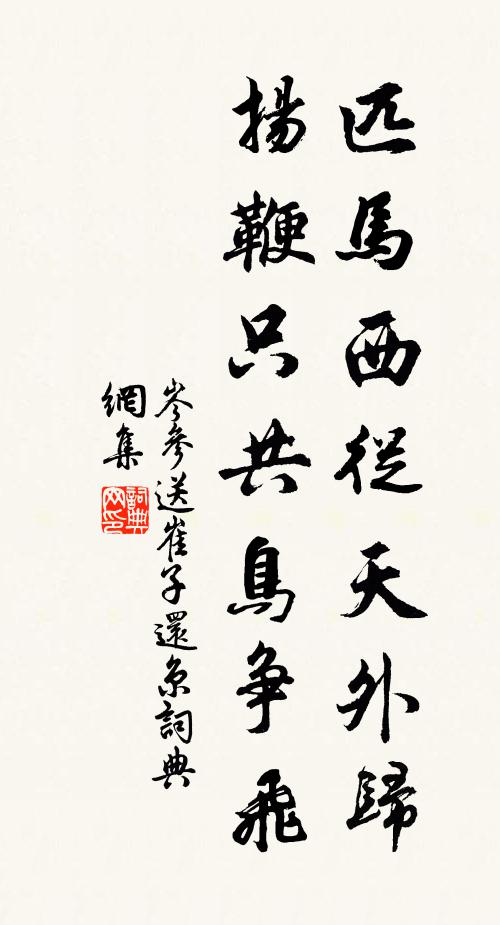 匹馬西從天外歸
揚鞭只共鳥争飛
岑參送崔子還京詞典
網集
詞典
网印